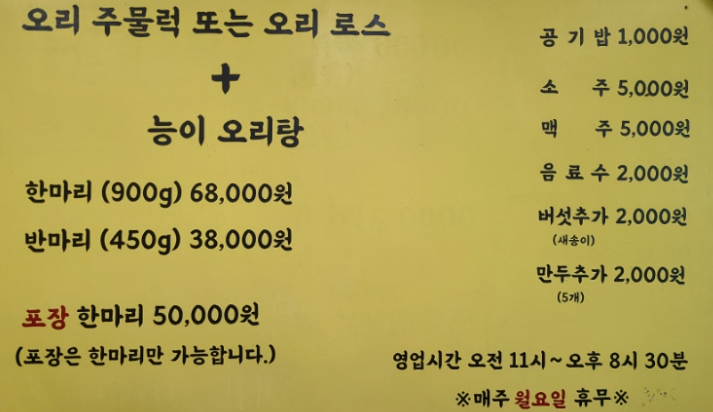 오리 주물럭 또는 오리 로스
+
능이 오리탕
한마리 (900g) 68,000원
반마리 (450g) 38,000원
포장 한마리 50,000원
(포장은 한마리만 가능합니다.)
공기밥 1,000원
소 주 5,000원
맥 주 5,000원
음료수 2,000원
버섯추가 2,000원
(새송이)
만두추가 2,000원
(5개)
영업시간 오전 11시~오후 8시 30분
※매주 월요일 휴무※